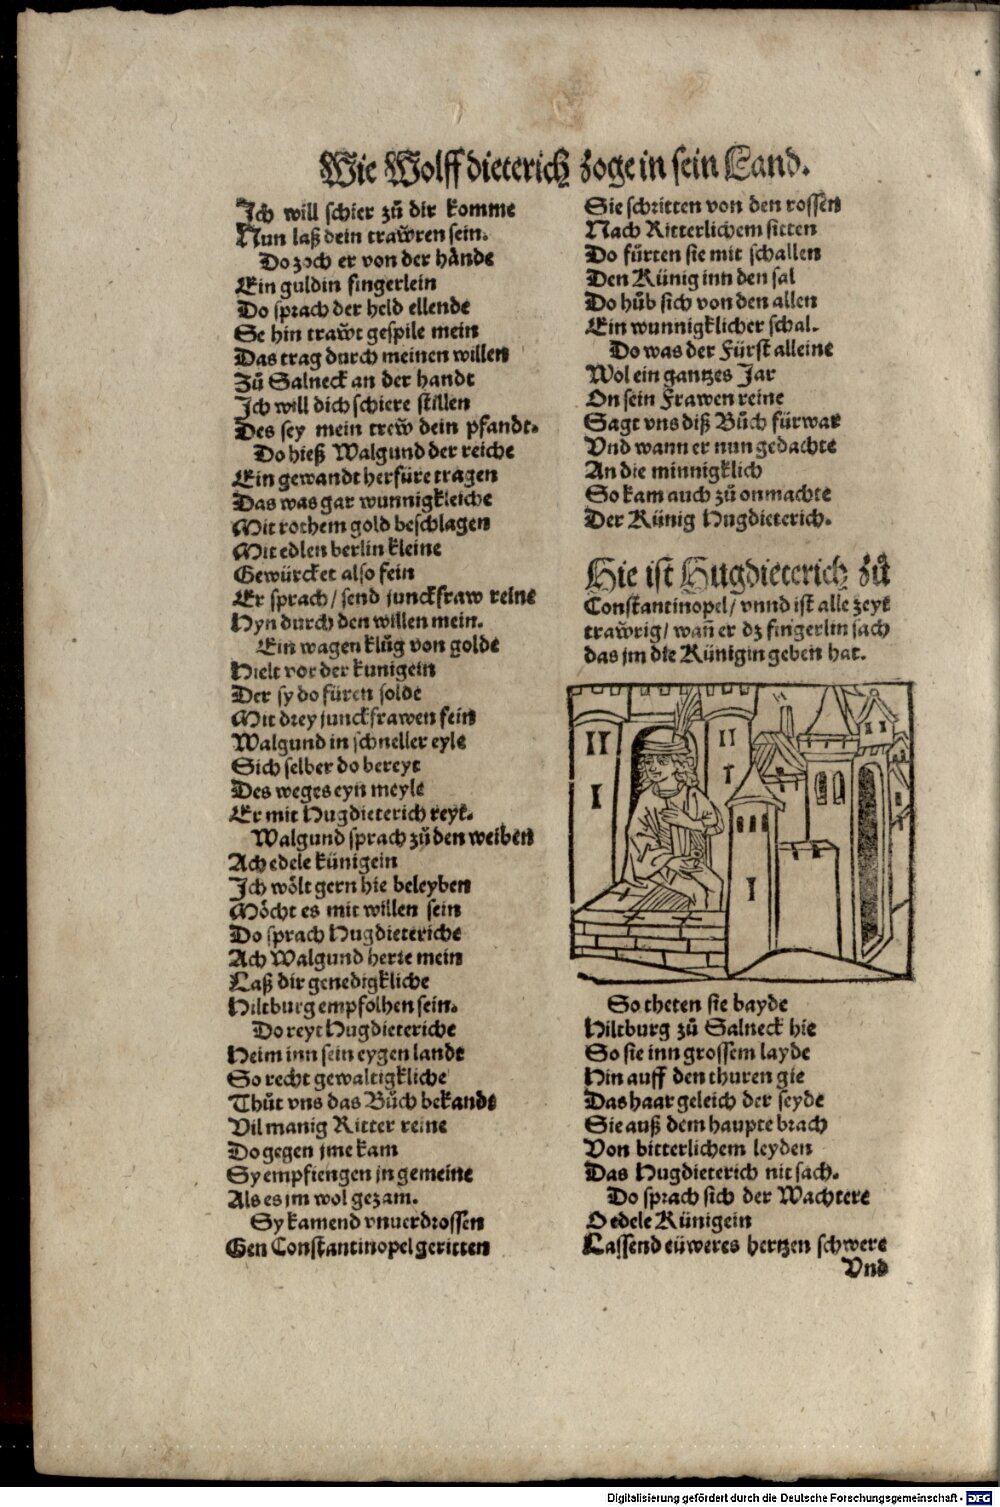 Wie Wolffdieterich zoge in sein Land.
Ich will schier zů dir komme
Nun laß dein traw̋ren sein.
Do zoch er von der hånde
Ein guldin fingerlein
Do sprach der held ellende
Se hin traw̋t gespile mein
Das trag durch meinen willen
Zů Salneck an der handt
Ich will dich schiere stillen
Des sey mein trew̋ dein pfandt.
Do hieß Walgund der reiche
Ein gewandt herfüre tragen
Das was gar wunnigkleiche
Mit rothem gold beschlagen
Mit edlen berlin kleine
Gewürcket also fein
Er sprach / send junckfraw reine
Hyn durch den willen mein.
Ein wagen klůg von golde
Hielt vor der kunigein
Der sy do füren solde
Mit drey junckfrawen fein
Walgund in schneller eyle
Sich selber do bereyt
Des weges eyn meyle
Er mit Hugdieterich reyt.
Walgund sprach zů den weiben
Ach edele künigein
Ich wölt gern hie beleyben
Möcht es mit willen sein
Do sprach Hugdieteriche
Ach Walgund herre mein
Laß dir genedigkliche
Hiltburg empfolhen sein.
Do reyt Hugdieteriche
Heim inn sein eygen landt
So recht gewaltigkliche
Thůt vns das Bůch bekandt
Vil manig Ritter reine
Do gegen jme kam
Sy empfiengen jn gemeine
Als es jm wol gezam.
Sy kamend vnuerdrossen
Gen Constantinopel geritten
Sie schritten von den rossen
Nach Ritterlichem sitten
Do fürten sie mit schallen
Den Künig inn den sal
Do hůb sich von den allen
Ein wunnigklicher schal.
Do was der Fürst alleine
Wol ein gantzes Jar
On sein Frawen reine
Sagt vns diß Bůch fürwar
Vnd wann er nun gedachte
An die minnigklich
So kam auch zů onmachte
Der Künig Hugdieterich.
Hie ist Hugdieterich zů
Constantinopel / vnnd ist alle zeyt
traw̋rig / wañ er dz fingerlin sach
das jm die Künigin geben hat.
So theten sie bayde
Hiltburg zů Salneck hie
So sie inn grossem layde
Hin auff den thuren gie
Das haar geleich der seyde
Sie auß dem haupte brach
Von bitterlichem leyden
Das Hugdieterich nit sach.
Do sprach sich der Wachtere
O edele Künigein
Lassend eüweres hertzen schwere
Vnd
Digitalisierung gefördert durch die Deutsche Forschungsgemeinschaft - DFG